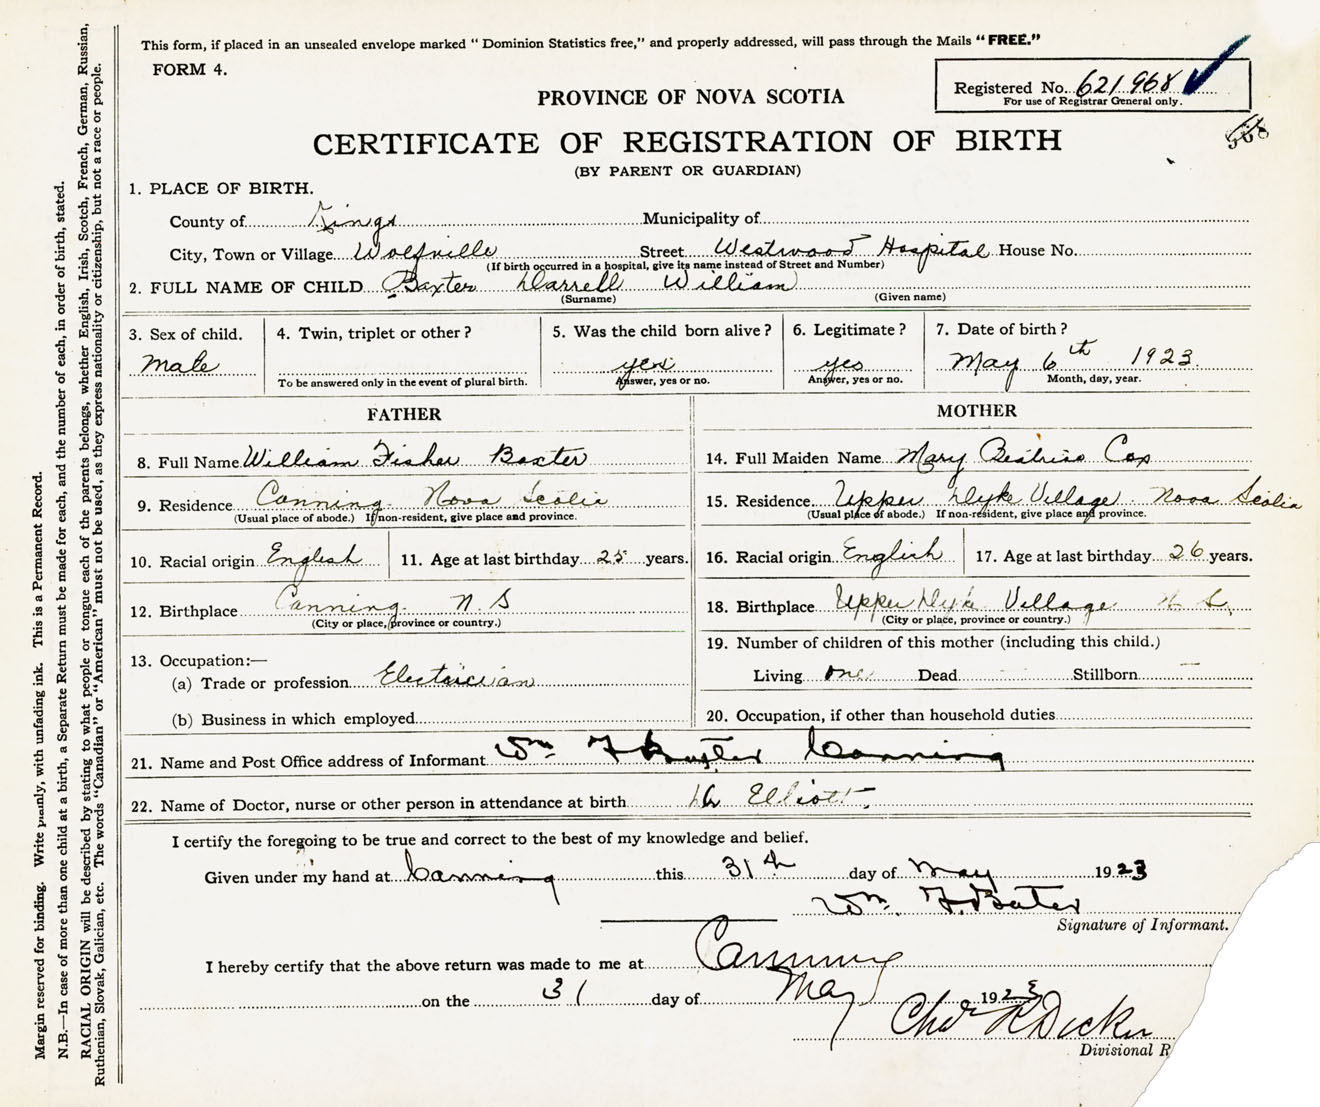 This form, if placed in an unsealed envelope marked “Dominion Statistics free,” and properly addressed, will pass through the Mails “FREE.”
FORM 4.
Registered No. 621968
For use of Registrar General only.
568
PROVINCE OF NOVA SCOTIA
CERTIFICATE OF REGISTRATION OF BIRTH
(BY PARENT OR GUARDIAN)
1. PLACE OF BIRTH.
County of Kings Municipality of
City, Town or Village Wolfville Street Westwood Hospital House No.
(If birth occurred in a hospital, give its name instead of Street and Number)
2. FULL NAME OF CHILD Baxter Darrell William
(Surname) (Given name)
3. Sex of child. 4. Twin, triplet or other? 5. Was the child born alive? 6. Legitimate? 7. Date of birth?
Male yes yes May 6th 1923.
To be answered only in the event of plural birth. Answer, yes or no. Answer, yes or no. Month, day, year.
FATHER MOTHER
8. Full Name William Fisher Baxter 14. Full Maiden Name Mary Beatrice Cox
9. Residence Canning Nova Scotia 15. Residence Upper Dyke Village Nova Scotia
(Usual place of abode.) If non-resident, give place and province. (Usual place of abode.) If non-resident, give place and province.
10. Racial origin English 11. Age at last birthday 25 years. 16. Racial origin English 17. Age at last birthday 26 years.
12. Birthplace Canning N.S 18. Birthplace Upper Dyke Village N.S.
(City or place, province or country.) (City or place, province or country.)
13. Occupation:— 19. Number of children of this mother (including this child.)
(a) Trade or profession Electrician Living one Dead Stillborn —
(b) Business in which employed 20. Occupation, if other than household duties
21. Name and Post Office address of Informant Wm F Baxter Canning
22. Name of Doctor, nurse or other person in attendance at birth Elliott
I certify the foregoing to be true and correct to the best of my knowledge and belief.
Given under my hand at Canning this 31th day of May 1923
Wm. F. Bater
Signature of Informant.
I hereby certify that the above return was made to me at Canning
on the 31 day of May 1923
Chas R Dickie
Divisional R
Margin reserved for binding. Write plainly, with unfading ink. This is a Permanent Record.
N.B.—In case of more than one child at a birth, a Separate Return must be made for each, and the number of each, in order of birth, stated.
RACIAL ORIGIN will be described by stating to what people or tongue each of the parents belongs, whether English, Irish, Scotch, French, German, Russian,
Ruthenian, Slovak, Galician, etc. The words “Canadian” or “American” must not be used, as they express nationality or citizenship, but not a race or people.